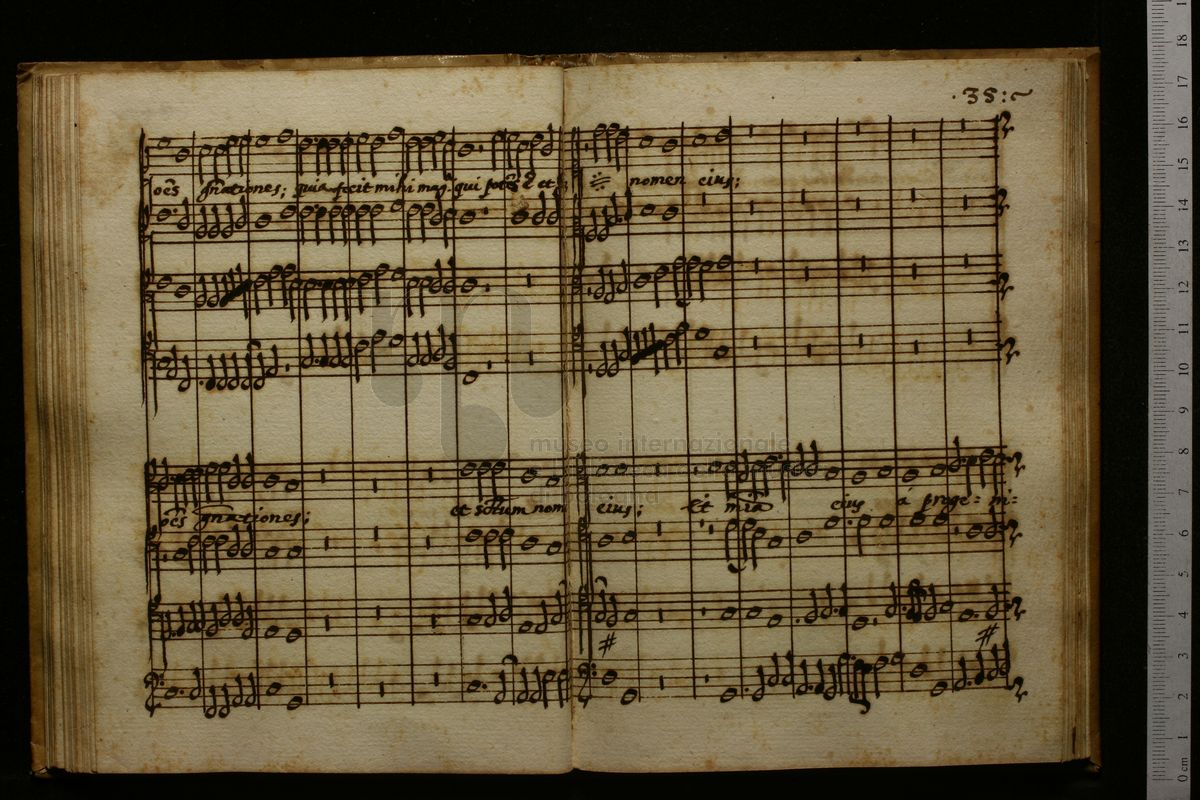 . 35 :~
oēs gñationes; quia fecit mihi mag. qui potēs ē et s. nomen eius;
museo internazionale
oēs gñationes; et sctum nom eius; Et mīa eius á proge = ni =
18
17
16
15
14
13
12
11
10
9
8
7
6
5
4
3
2
1
0 cm